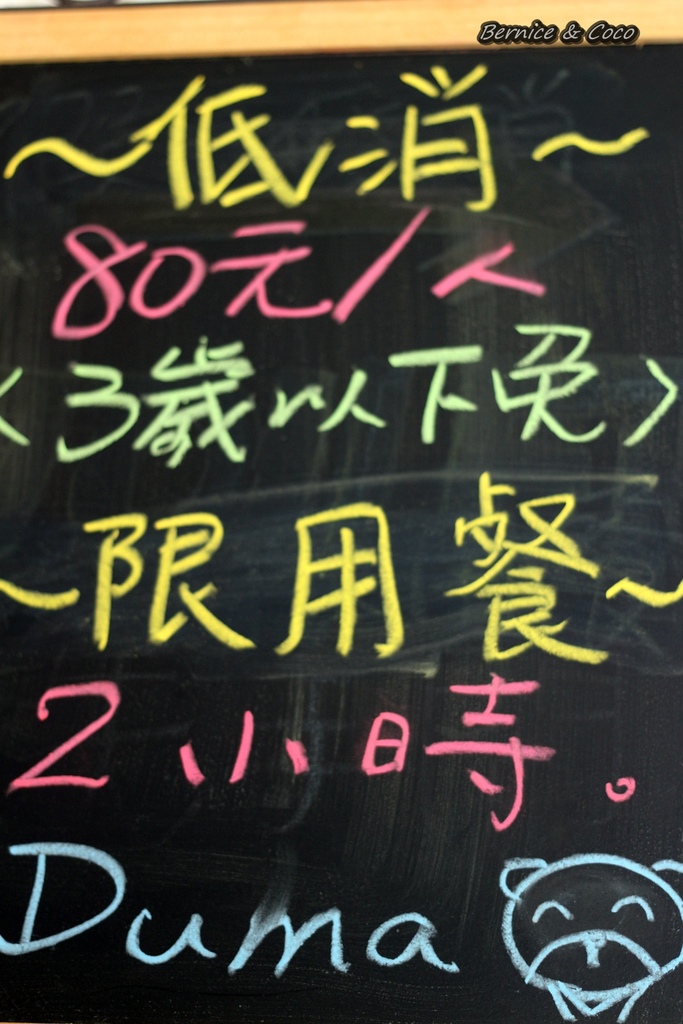 Bernice & Coco
~低消~
80元/人
<3歲以下免>
~限用餐~
2小時。
Duma